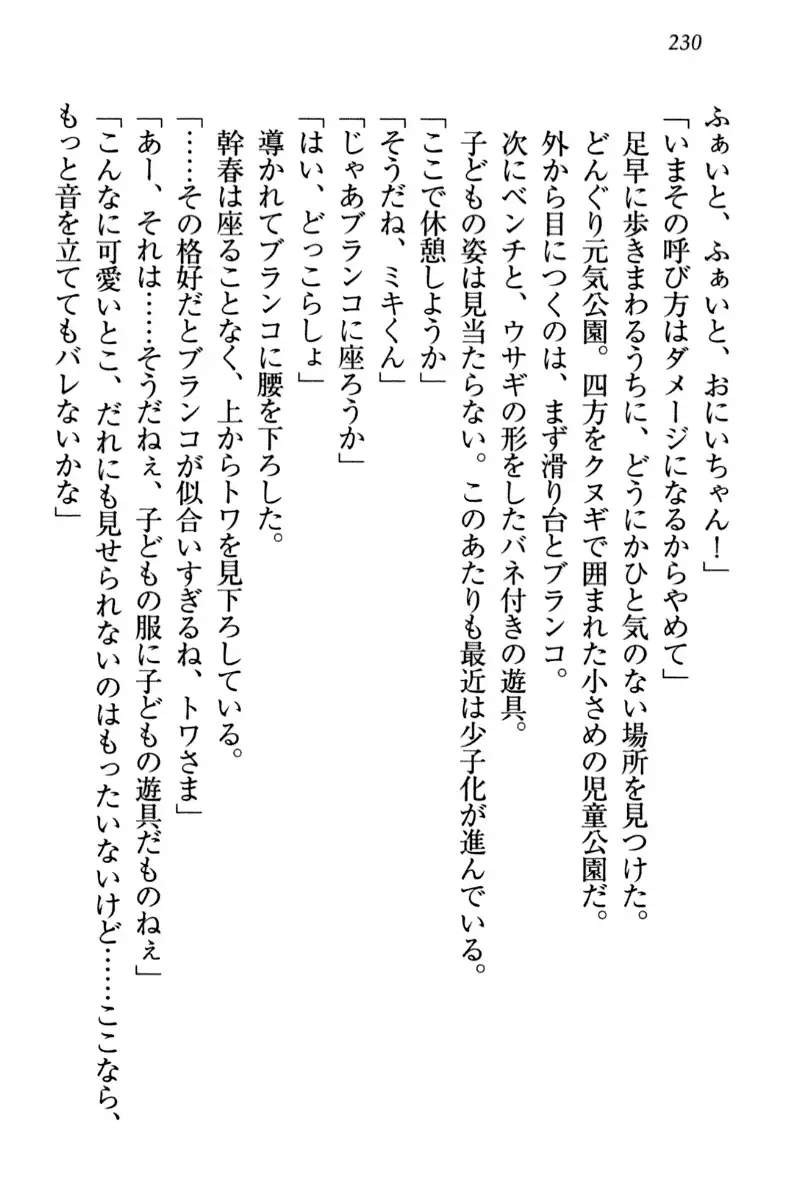 230
ふぁいと、ふぁいと、おにいちゃん！」
「いまその呼び方はダメージになるからやめて」
足早に歩きまわるうちに、どうにかひと気のない場所を見つけた。
どんぐり元気公園。四方をクヌギで囲まれた小さめの児童公園だ。
外から目につくのは、まず滑り台とブランコ。
次にベンチと、ウサギの形をしたバネ付きの遊具。
子どもの姿は見当たらない。このあたりも最近は少子化が進んでいる。
「ここで休憩しようか」
「そうだね、ミキくん」
「じゃあブランコに座ろうか」
「はい、どっこらしょ」
導かれてブランコに腰を下ろした。
幹春は座ることなく、上からトワを見下ろしている。
「……その格好だとブランコが似合いすぎるね、トワさま」
「あー、それは……そうだねぇ、子どもの服に子どもの遊具だものねぇ」
「こんなに可愛いとこ、だれにも見せられないのはもったいないけど……ここなら、
もっと音を立ててもバレないかな」